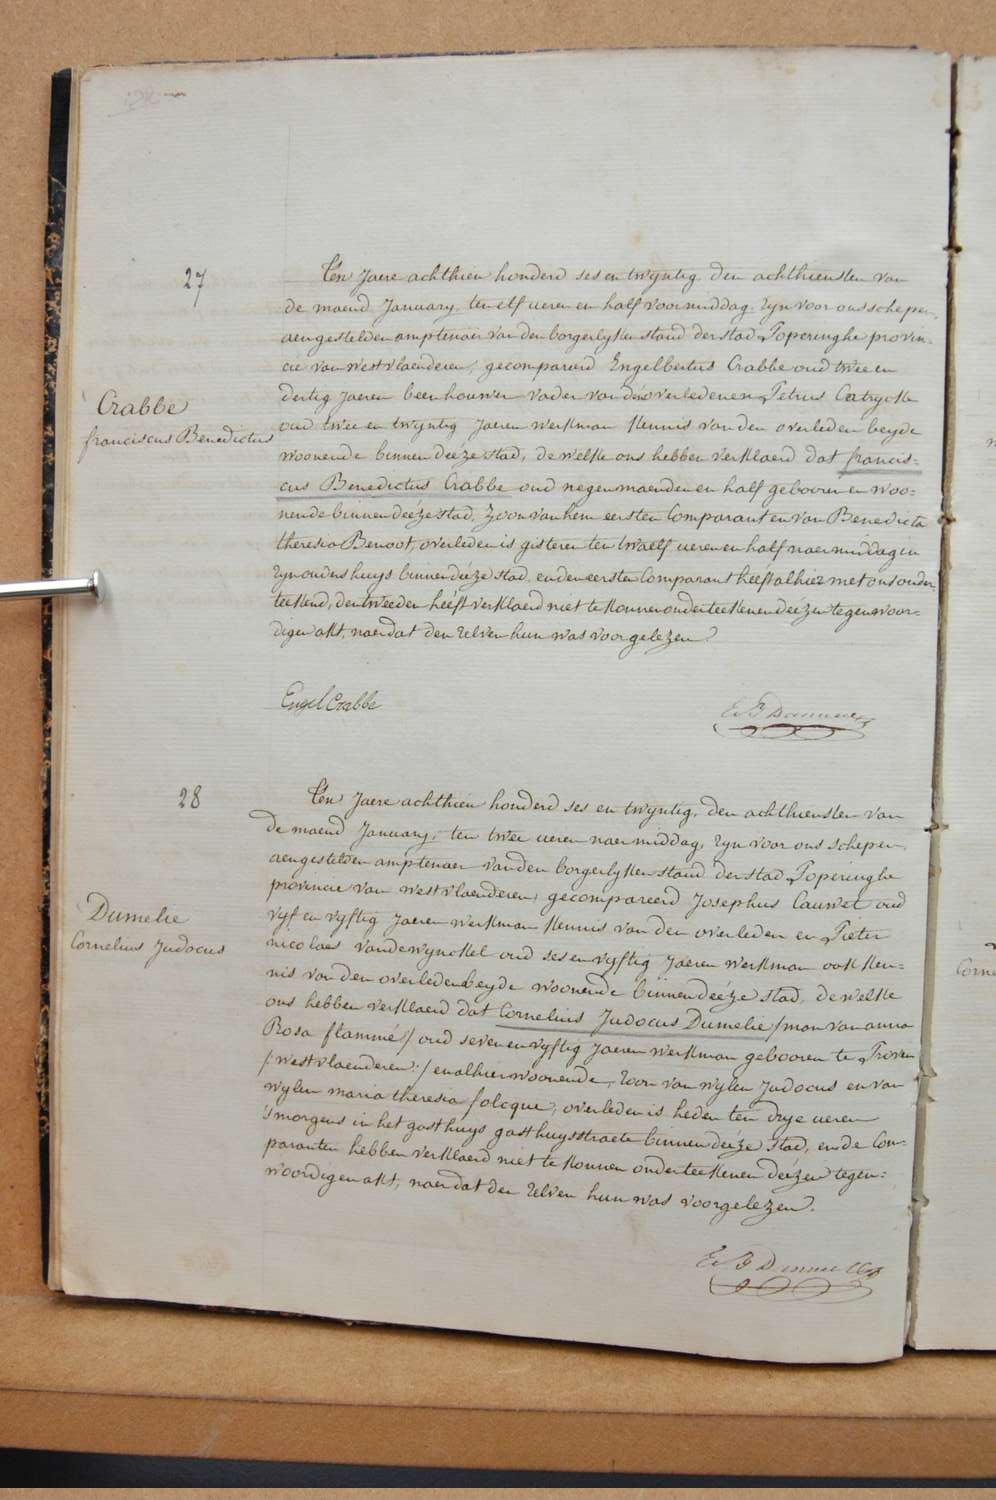 27
Ten Jaere achthien honderd ses en twyntig, den achthiensten van
de maend January, ten elf ueren en half voormiddag, zyn voor ons schepen,
aengestelden amptenaer van den borgerlyken stand der stad Poperinghe provin-
cie van westvlaenderen, gecompareerd Engelbertus Crabbe oud twee en
dertig jaeren beenhouwer vader van den overledenen, Petrus Catrycke
oud twee en twyntig jaeren werkman kennis van den overleden beyde
woonende binnen deéze stad, de welke ons hebben verklaerd dat francis-
cus Benedictus Crabbe oud negen maenden en half gebooren en woo-
nende binnen deéze stad, Zoon van hem eersten Comparant en van Benedicta
theresia Benoot, overleden is gisteren ten twaelf ueren en half naermiddag in
zyn ouders huys binnen deéze stad, en den eersten Comparant heéft alhier met ons onder-
teekend, den tweeden heéft verklaerd niet te konnen onderteekenen deézen tegenwoor-
digen akt, naer dat den zelven hun was voorgelezen
Crabbe
franciscus Benedictus
Engel Crabbe
28
Ten Jaere achthien honderd ses en twyntig, den achthiensten van
de maend January, ten twee ueren naermiddag, zyn voor ons schepen,
aengestelden amptenaer van den borgerlyken stand der stad Poperinghe
provincie van westvlaenderen, gecompareerd Josephus Cauwet oud
vyf en vyftig jaeren werkman kennis van den overleden en Pieter
nicolaes vandewynckel oud ses en vyftig jaeren werkman ook ken-
nis van den overleden beyde woonende binnen deéze stad, de welke
ons hebben verklaerd dat Cornelius Judocus Dumelie /man van anna
Rosa flammé/ oud seven en vyftig jaeren werkman gebooren te Proven
/:westvlaenderen:/ en alhier woonende, zoon van wylen Judocus en van
wylen maria theresia folcque, overleden is heden ten drye ueren
's morgens in het gasthuys gasthuysstraete binnen deéze stad, en de Com-
paranten hebben verklaerd niet te konnen onderteekenen deézen tegen-
woordigen akt, naer dat den zelven hun was voorgelezen.
Dumelie
Cornelius Judocus